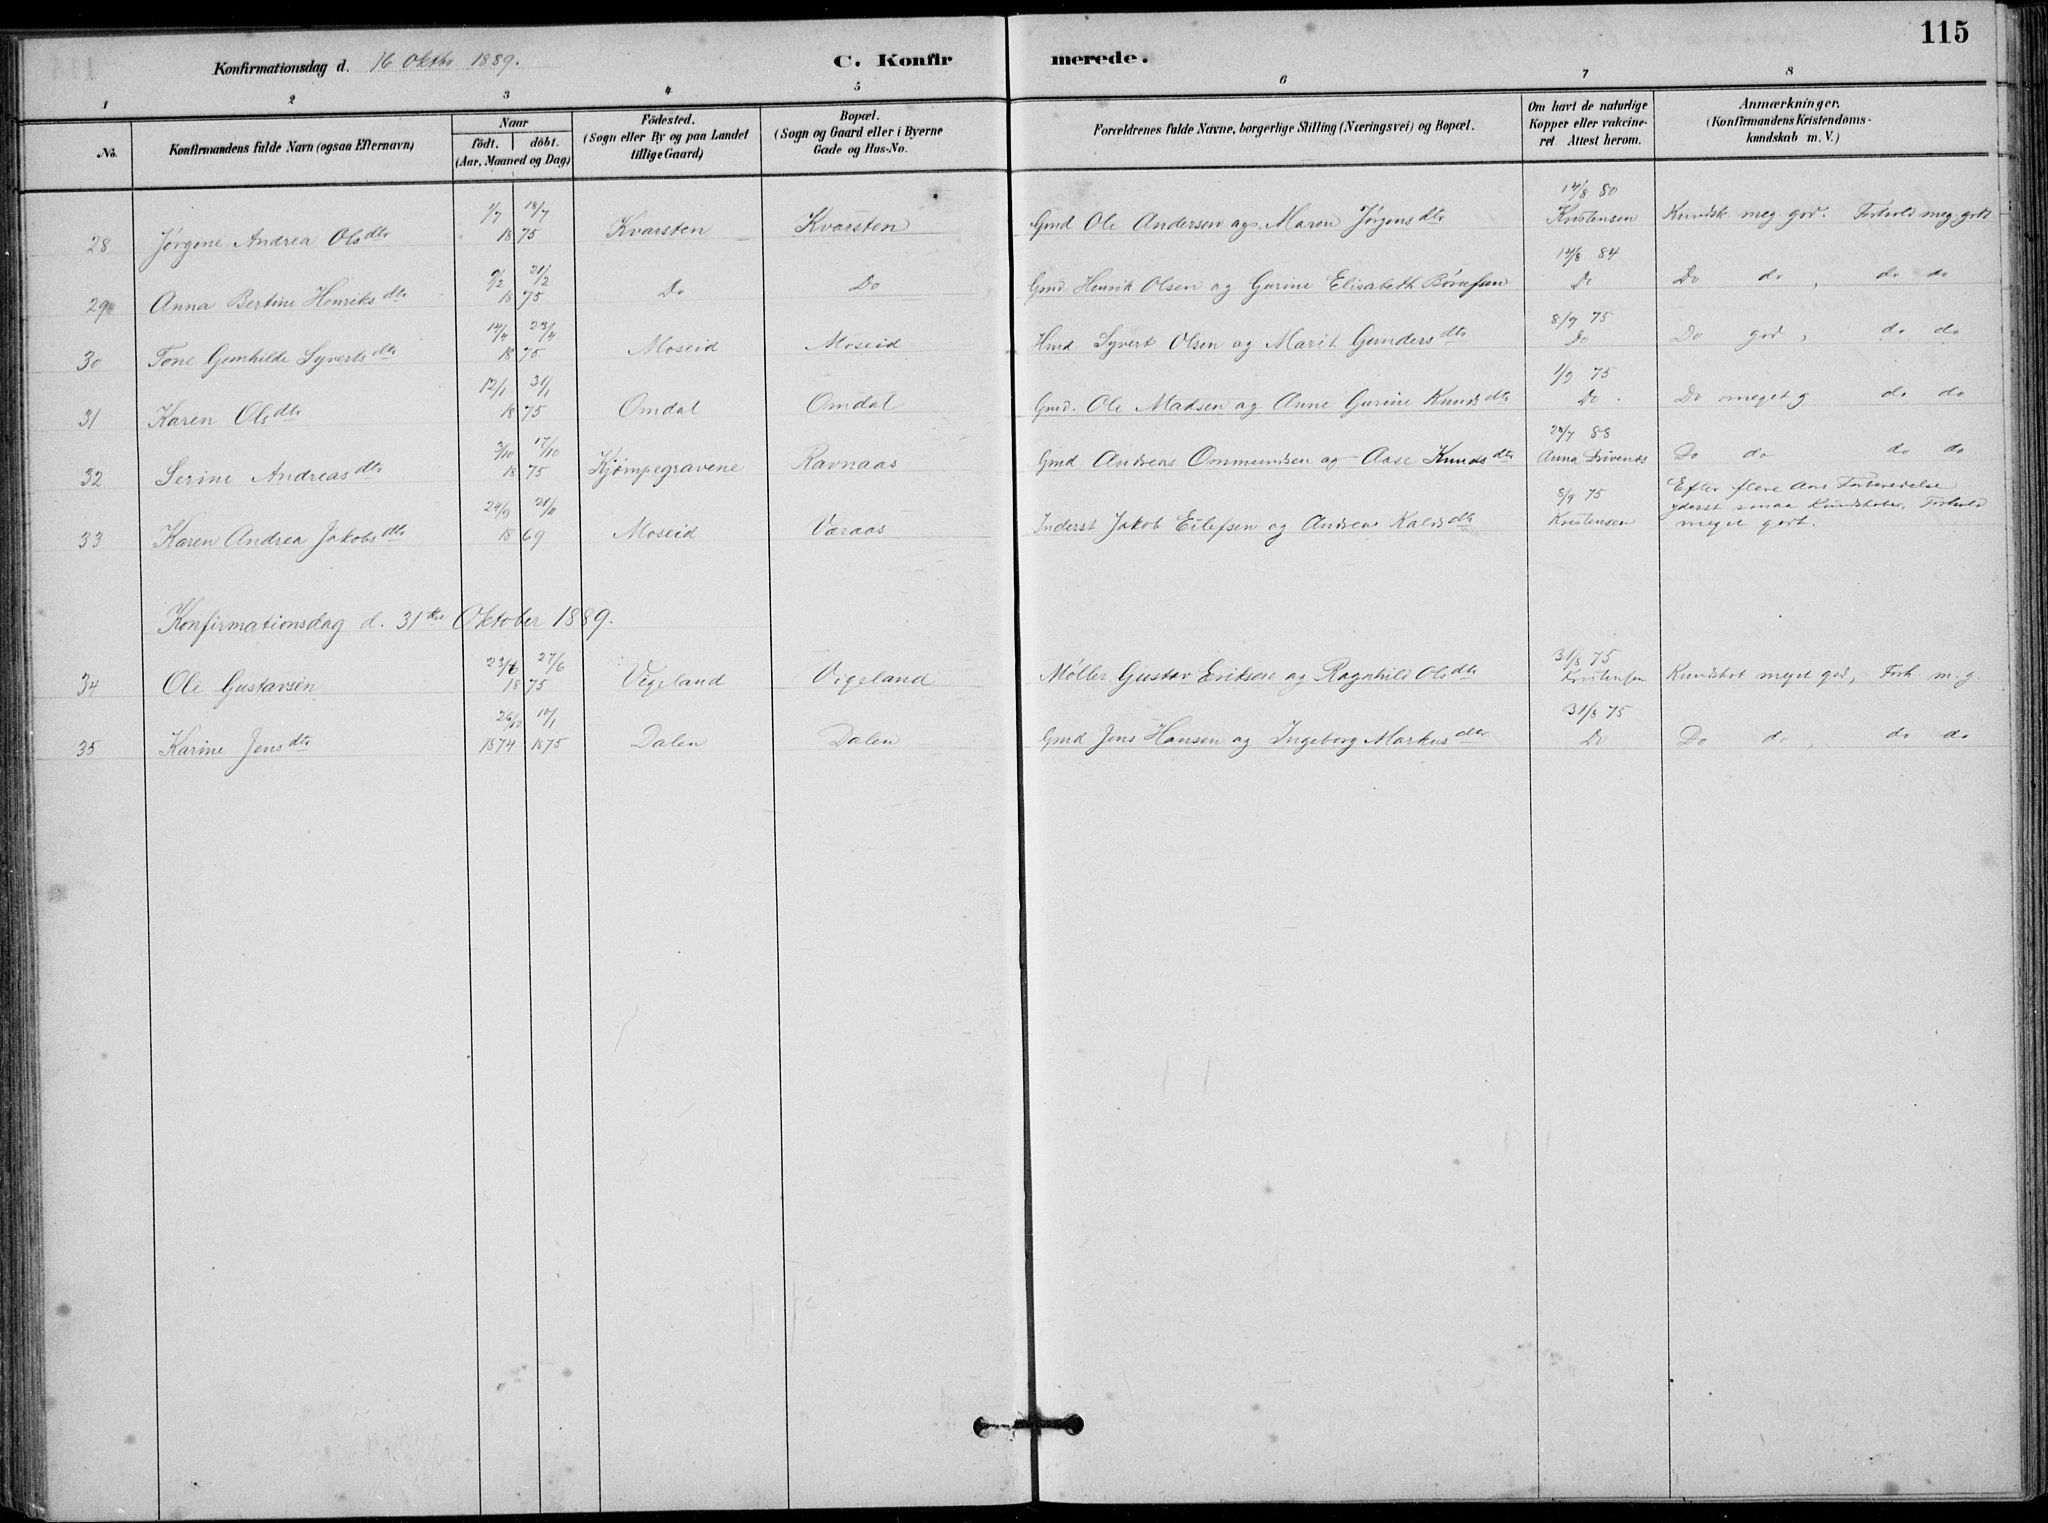 115
Konfirmationsdag d. 16 Oktbr 1889. C. Konfir merede.
1 2 3 4 5 6 7 8
No. Konfirmandens fulde Navn (ogsaa Efternavn) Naar født. døbt. (Aar, Maaned og Dag) Födested. (Sogn eller By og paa Landet tillige Gaard) Bopæl. (Sogn og Gaard eller i Byerne Gade og Hus-No. Forældrenes fulde Navne, borgerlige Stilling (Næringsvei) og Bopæl. Om havt de naturlige Kopper eller vakcineret Attest herom. Anmærkninger. (Konfirmandens Kristendomskundskab m. V.)
28 Jørgine Andrea Olsdtr 1/7 18/7 1875 Kvarsten Kvarsten Gmd Ole Andersen og Maren Jørgensdtr 14/8 80 Kristensen Kundsk. meg. god. Forhold meg. godt
29 Anna Bertine Henriksdtr 9/2 21/2 1875 Do Do Gmd Henrik Olsen og Gurine Elisabeth 14/8 84 Do Do do, do do
30 Tone Gunhilde Syvertsdtr 14/4 23/4 1875 Moseid Moseid Hmd Syvert Olsen og Marit Gundersdtr 8/9 75 Do Do god, do do
31 Karen Olsdtr 12/1 31/1 1875 Omdal Omdal Gmd. Ole Madsen og Anne Gurine Knudsdtr 1/9 75 Do. Do meget g do do
32 Serine Andreasdtr 3/10 17/10 1875 Kjømpegravene Ravnaas Gmd Andreas Ommundsen og Aase Knudsdtr 28/7 88 Anna Do do do do
33 Karen Andrea Jakobsdtr 24/9 21/11 1869 Moseid Varaas Inderst Jakob Eilefsen og Andrea dtr 8/9 75 Kristensen Efter flere Aars Forberedelse yderst smaa Kundskaber, Forhold meget godt.
Konfirmationsdag d. 31te Oktober 1889.
34 Ole Gustavsen 23/6 27/6 1875 Vigeland Vigeland Møller Gustav Eriksen og Ragnhild Olsdtr 31/8 75 Kristensen Kundskab meget god, Forh. m. g.
35 Karine Jensdtr 26/12 10/1 1874 1875 Dalen Dalen Gmd Jens Hansen og Ingeborg Markusdtr 31/8 75 Do Do do, do do